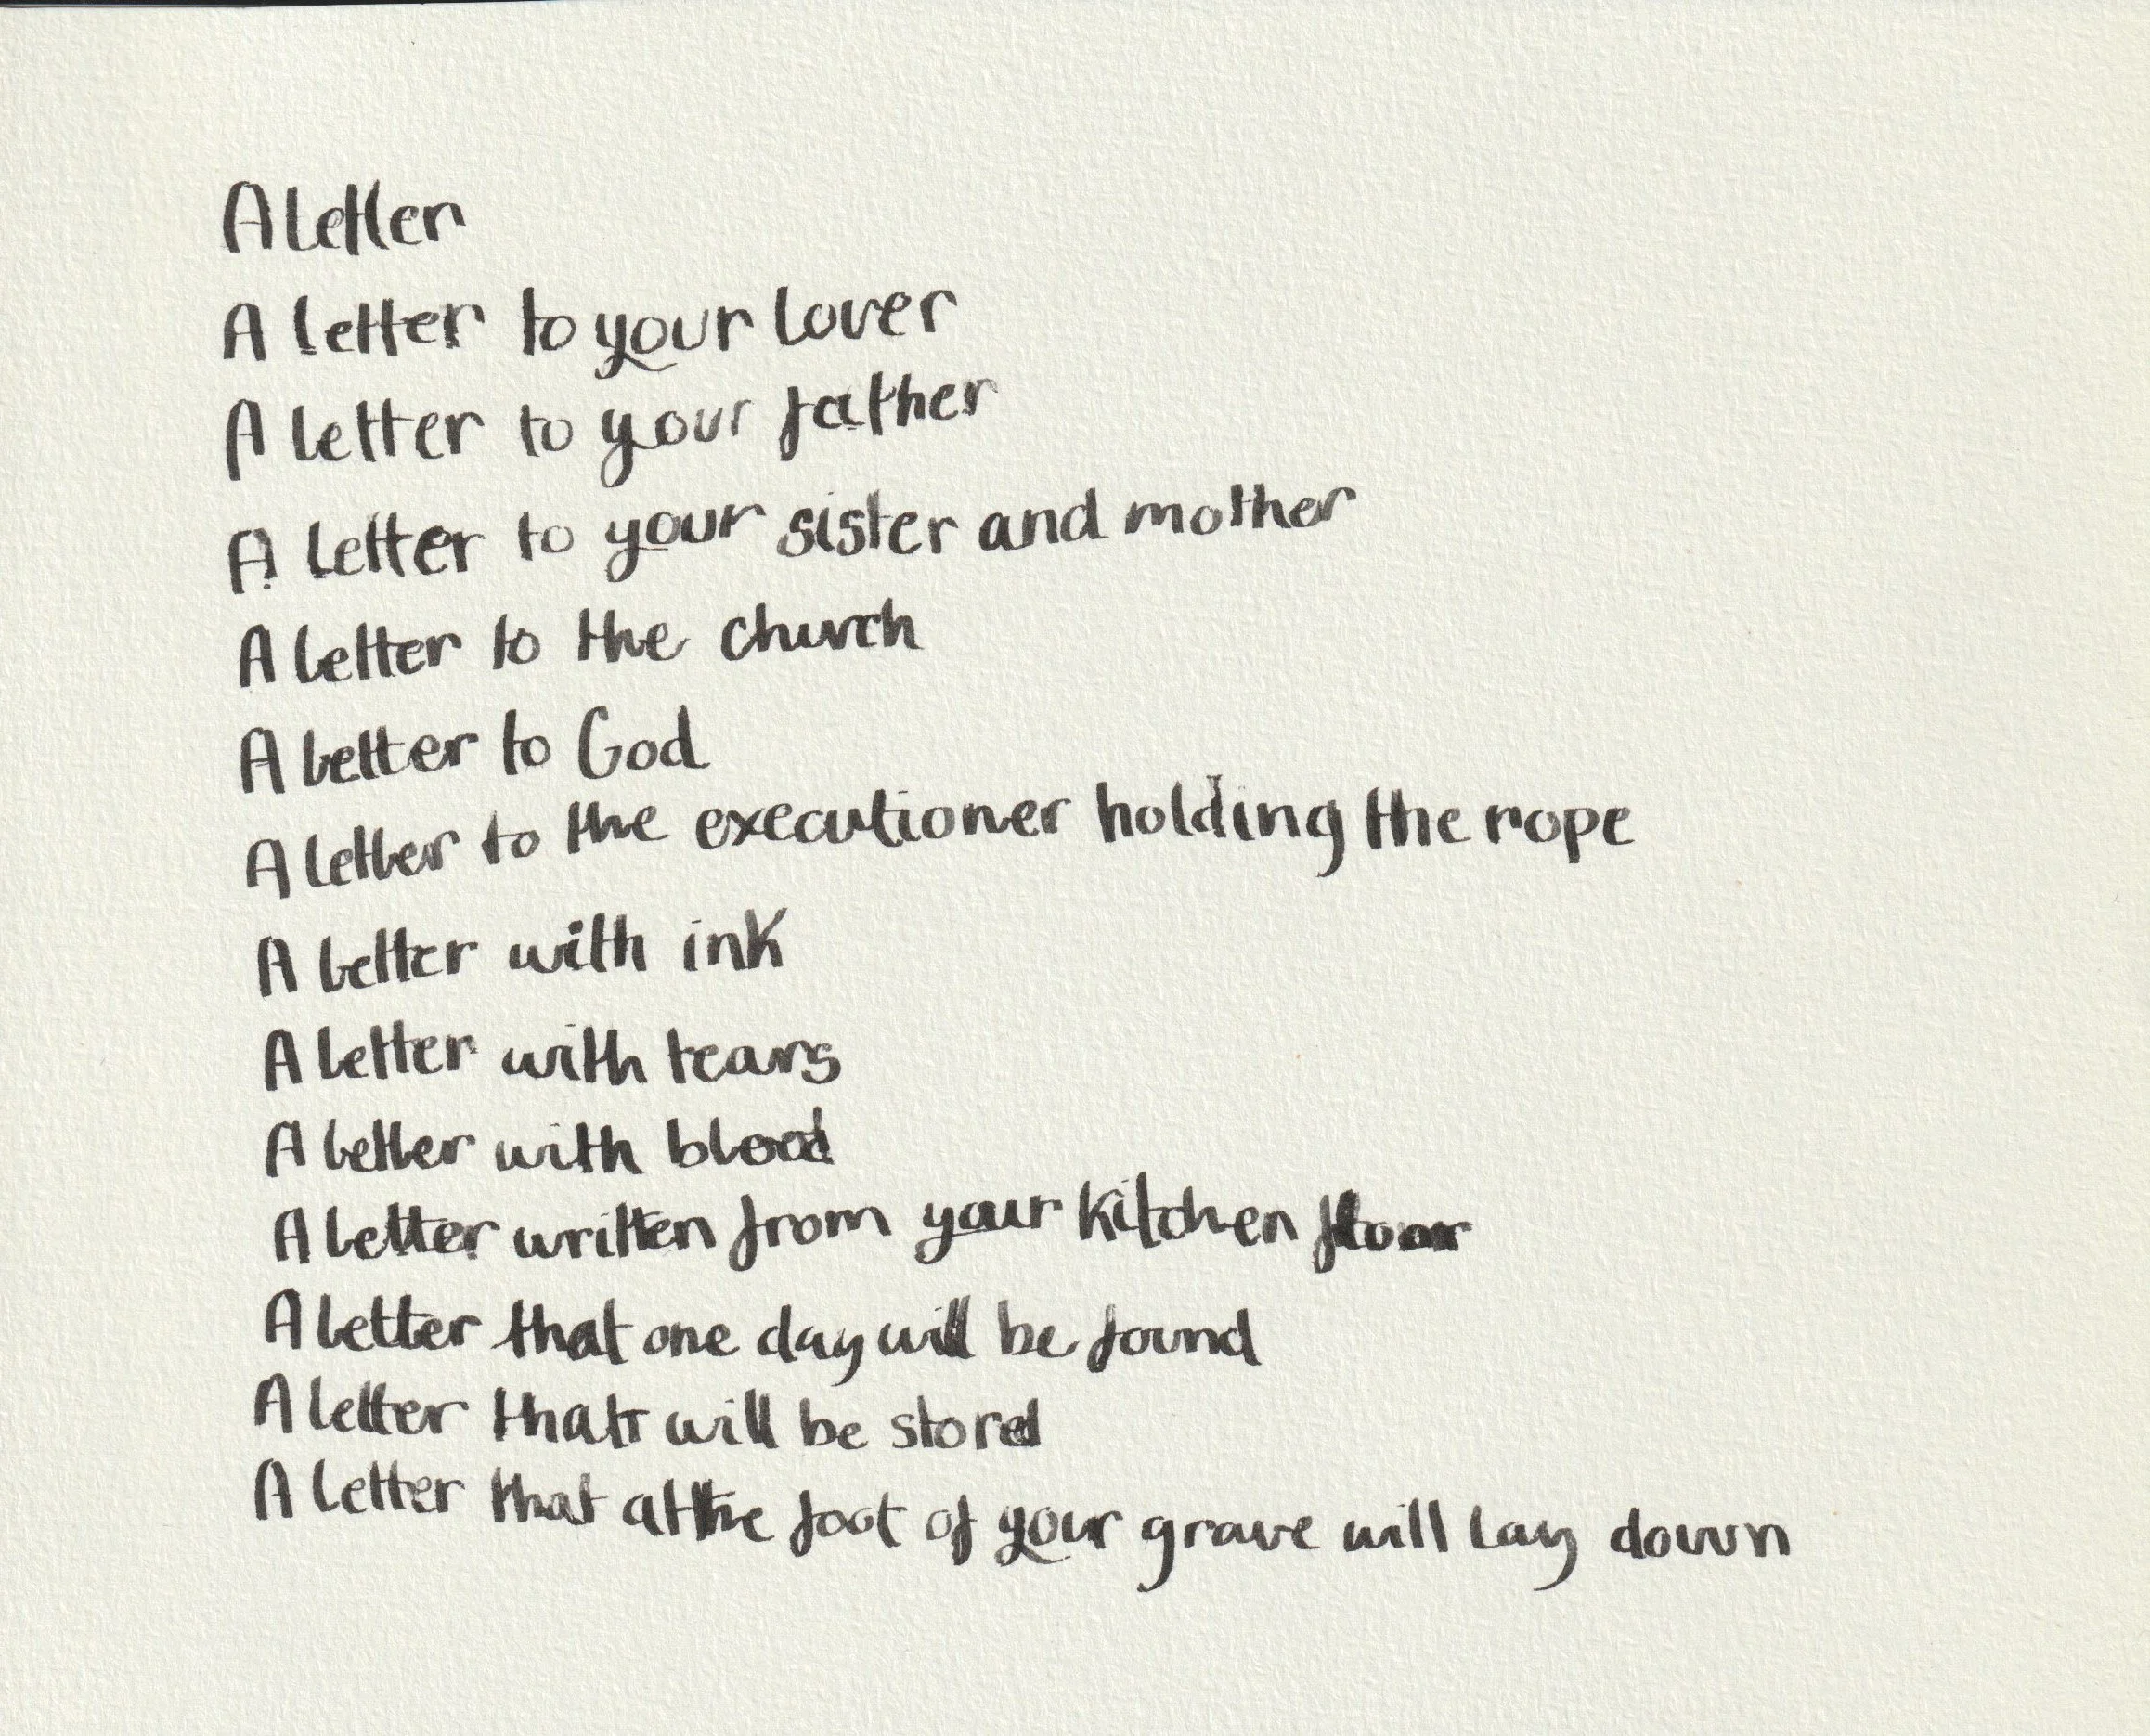 A letter
A letter to your lover
A letter to your father
A letter to your sister and mother
A letter to the church
A letter to God
A letter to the executioner holding the rope
A letter with ink
A letter with tears
A letter with blood
A letter written from your kitchen floor
A letter that one day will be found
A letter that will be stored
A letter that at the foot of your grave will lay down